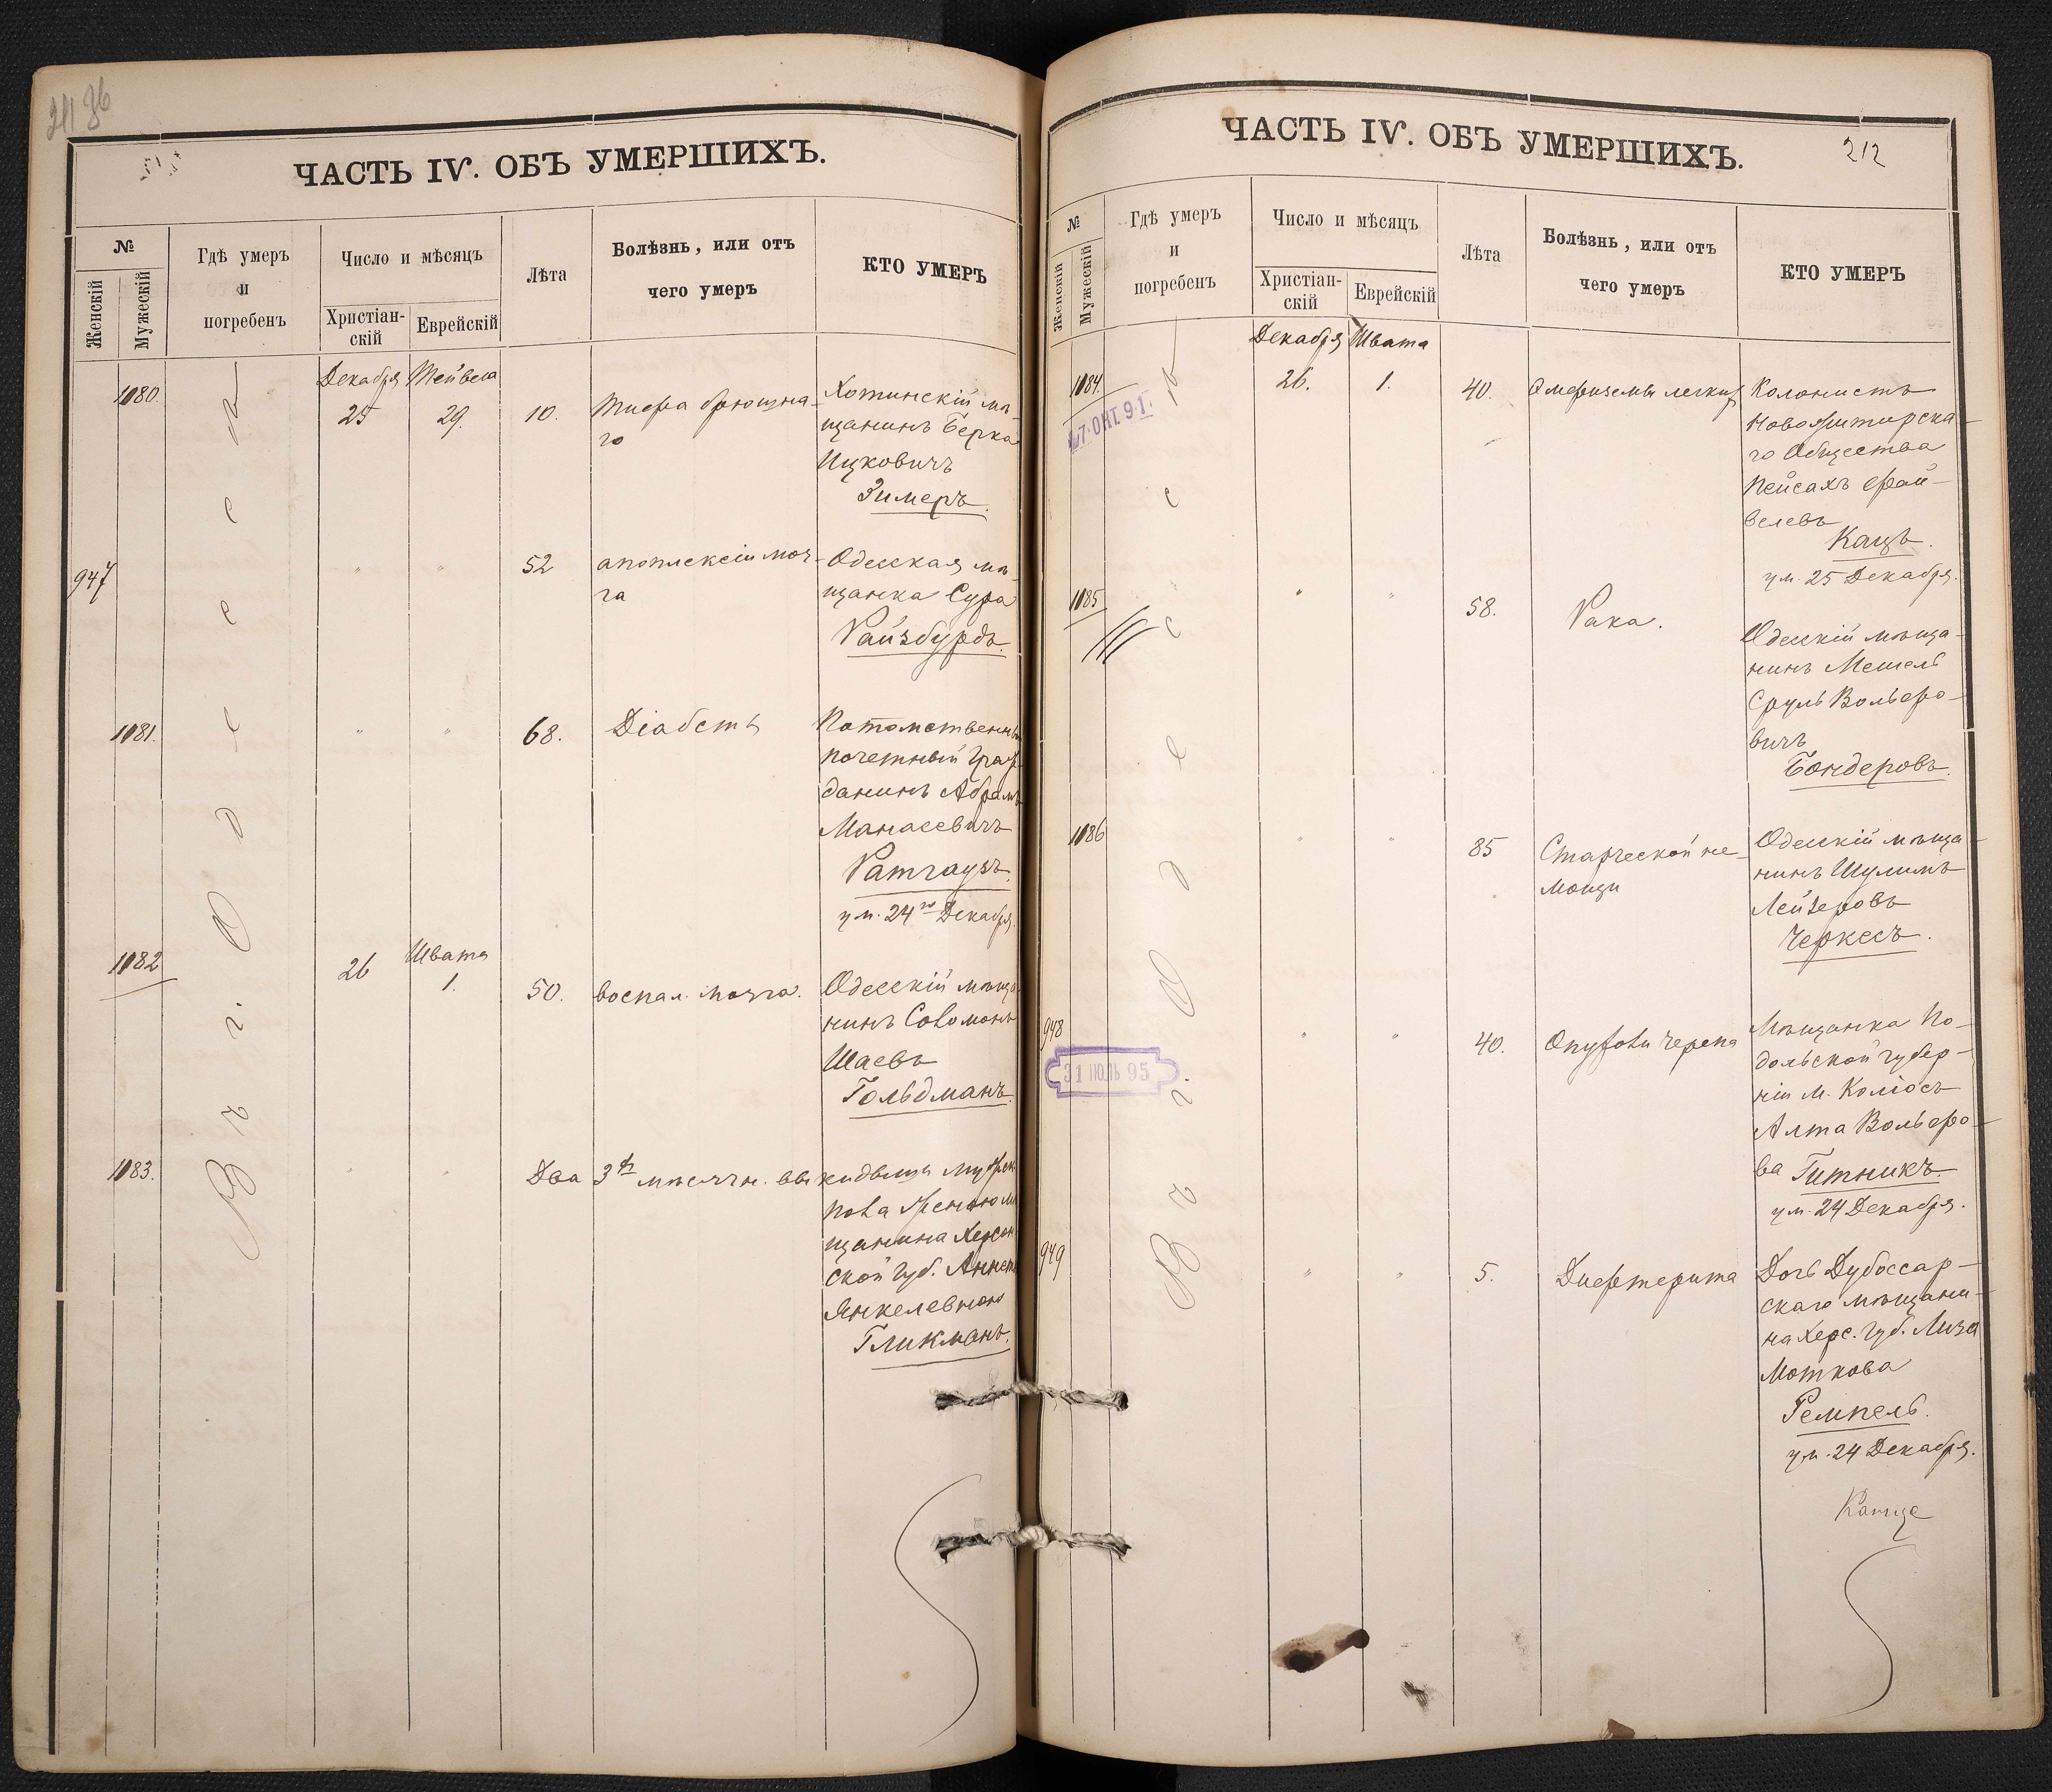 ЧАСТЬ IV. ОБЪ УМЕРШИХЪ.
№
Женскій
Мужескій
Гдѣ умеръ
и
погребенъ
Число и мѣсяцъ
Христіан-
скій
Еврейскій
Лѣта
Болѣзнь, или отъ
чего умеръ
КТО УМЕРЪ
Въ г. Одессѣ
1080.
Декабря
25
Тейвеса
29.
10.
Тифа брюшна-
го
Хотинскій мѣ-
щанинъ Берко
Ицковичъ
Зимеръ.
947
"
"
52
апоплексіи моз-
га
Одесская мѣ-
щанка Сура
Райзбурдъ.
1081.
"
"
68.
Діабетъ
Потомственны
почетный граж
данинъ Абрамъ
Манасевичъ
Ратгаузъ.
ум. 24го Декабря.
1082
26
Швата
1.
50.
воспал. мозга.
Одесскій мѣща
нинъ Соломонъ
Шаевъ
Гольдманъ.
1083.
"
"
Два 3хъ мѣсячн. выкидыши мужск.
пола
щанина Херсон
ской губ.
Янкелевною
Гликманъ.
ЧАСТЬ IV. ОБЪ УМЕРШИХЪ.
212
№
Женскій
Мужескій
Гдѣ умеръ
и
погребенъ
Число и мѣсяцъ
Христіан-
скій
Еврейскій
Лѣта
Болѣзнь, или отъ
чего умеръ
КТО УМЕРЪ
Въ г. Одессѣ
1084.
7·ОКТ.91·
Декабря
26.
Швата
1.
40.
Эмфиземы легкихъ
Колонистъ
Новожитирска-
го Общества
Пейсахъ Фай-
велевъ
Кацъ.
ум. 25 Декабря.
1085
"
"
58.
Рака.
Одесскій мѣща-
нинъ Мешель
Сруль Вольфо-
вичъ
Бондеровъ.
1086
"
"
85
Старческой не-
мощи
Одесскій мѣща-
нинъ Шулимъ
Лейзеровъ
Черкесъ.
948
31 ІЮЛЬ 95
"
"
40.
Опухоли черепа
Мѣщанка По-
дольской губер-
ніи м.
Алта Вольфо-
ва Гитникъ.
ум. 24 Декабря.
949
"
"
5.
Дифтерита
Дочь Дубоссар-
скаго мѣщани-
на Херс. губ. Лиза
Моткова
Ремпель.
ум. 24 Декабря.